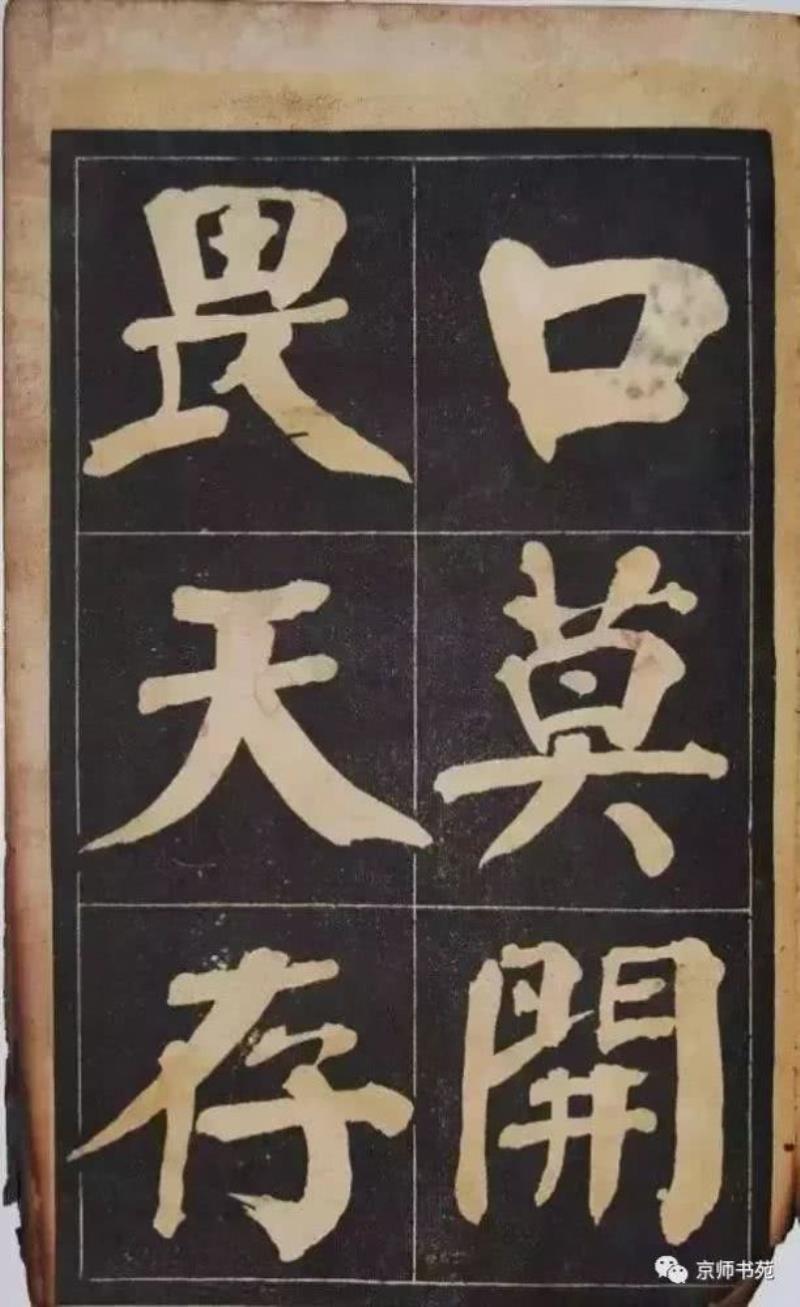 口莫開
畏天存
京师书苑